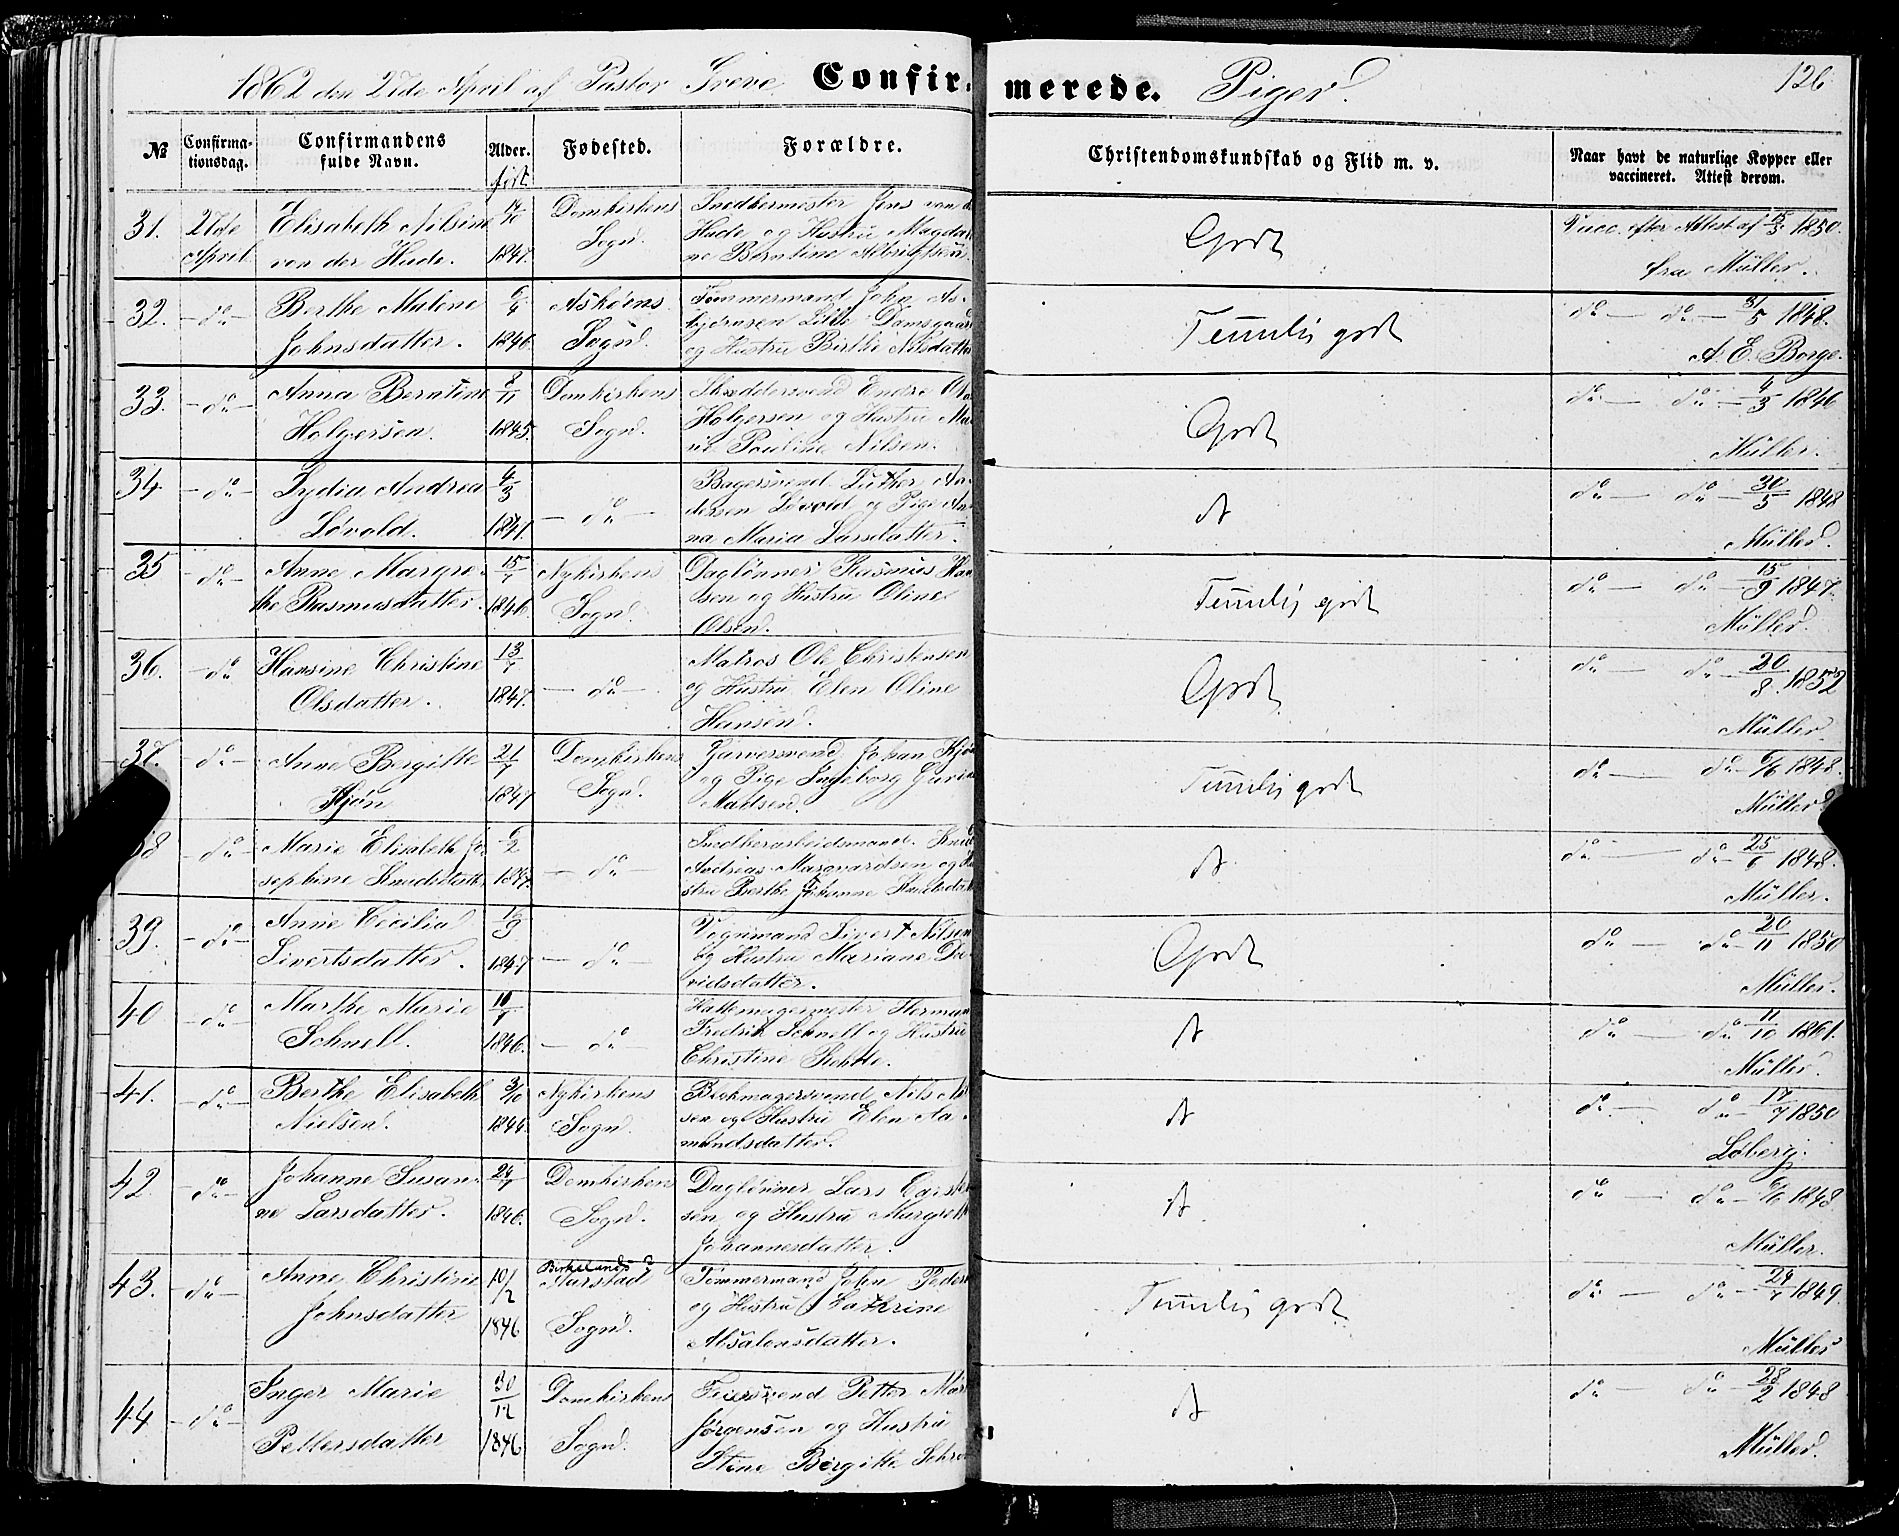 1862 den 27de April af Pastor Greve. Confirmerede. Piger. 126
№ Confirmationsdag. Confirmandens fulde Navn. Alder. født Fødested. Forældre. Christendomskundskab og Flid m. v. Naar havt de naturlige Kopper eller vaccineret. Attest derom.
31. 27de Elisabeth Nilsine 14/10 Domkirkens Snedkermester Jens van d Godt Vacc. efter Attest af 15/5 1850.
April von der Hude. 1847. Sogn. Hude og Hustru Magdale fra Müller.
ne Berntine Albrigtsen.
32. do Berthe Malene 6/4 Askøens Tømmermand John As- Temlig godt do do 31/5 1848.
Johnsdatter. 1846. Sogn. bjørnsen Lille Damsgaard A. E. Borge.
og Hustru Birthe Nilsdatter
33. do Anna Berntine 8/11 Domkirkens Skræddersvend Endre Ol Godt do do 4/3 1846
Holgersen. 1845. Sogn. Holgersen og Hustru Ma Müller.
Pauline Nilsen.
34. do Lydia Andrea 4/3 do Bagersvend Luther An dt do do 30/5 1848
Løvold. 1847. dersen Løvold og Pige An Müller.
na Maria Larsdatter.
35 do Anne Margre- 15/7 Nykirkens Daglønner Rasmus Han Temlig godt do do 15/9 1847.
the Rasmusdatter. 1846. Sogn. sen og Hustru Oline Müller.
Olsen.
36. do Hansine Christine 13/7 do Matros Ole Christensen Godt do do 20/8 1852
Olsdatter. 1847. og Hustru Elen Oline Müller.
Hansen.
37. do Anne Bergitte 21/7 Domkirkens Garversvend Johan Kjøn Temlig godt do do 6/6 1848.
Kjøn 1847 Sogn. og Pige Ingeborg Gurin Müller.
Madsen.
38 do Marie Elisabeth Jo- 6/2 do Snedkerarbeidsmand Knud dt do do 25/6 1848.
sephine Knudsdatter 1847. Andreas Marqvardsen og Hu Müller.
stru Berthe Johanne Knudsdat
39. do Anne Cecilia 16/9 do Vognmand Sivert Nilsen Godt do do 20/11 1850
Sivertsdatter. 1847 og Hustru Mariane Da Müller.
vidsdatter.
40 do Marthe Marie 10/7 do Hattemagermester Herman dt do do 11/10 1861.
Schnell. 1846. Fredrik Schnell og Hustru Müller.
Christine
41. do Berthe Elisabeth 3/10 Nykirkens Blokmagersvend Nils Nil dt do do 17/7 1850
Nielsen. 1846. Sogn. sen og Hustru Elen Aa- Løberg.
mundsdatter.
42 do Johanne Susan- 24/7 Domkirkens Daglønner Lars dt do do 6/6 1848
ne Larsdatter. 1846. Sogn. sen og Hustru Margrethe Müller.
Johannesdatter.
43. do Anne Christine 10/2 Birkelands Tømmermand John Peders Temlig godt do do 24/7 1849
Johnsdatter 1846 Aarstad og Hustru Cathrine Müller
Sogn. Absalonsdatter.
44 do Inger Marie 30/12 Domkirkens Feiersvend Petter Mar dt do do 28/2 1848
Pettersdatter 1846 Sogn. Jørgensen og Hustru Müller.
Stine Birgitte Schrø